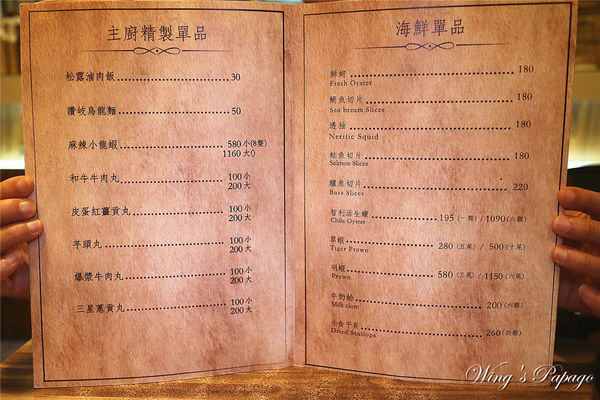 主廚精製單品
松露滷肉飯 30
讚岐烏龍麵 50
麻辣小龍蝦 580小(8隻)
1160大()
和牛牛肉丸 100小
200大
皮蛋紅薑貢丸 100小
200大
芋頭丸 100小
200大
爆漿牛肉丸 100小
200大
三星蔥貢丸 100小
200大
海鮮單品
鮮蚵 180
Fresh Oyster
鯛魚切片 180
Sea bream Slices
透抽 180
Neritic Squid
鮭魚切片 180
Salmon Slices
鱸魚切片 220
Bass Slices
智利活生蠔 195(一顆)/1090(六顆)
Chile Oyster
草蝦 280(五尾)/500(十尾)
Tiger Prawn
明蝦 580(三尾)/1150(六尾)
Prawn
牛奶蛤 200(六顆)
Milk clam
生食干貝 260(四顆)
Dried Scallops
Wing's Papago